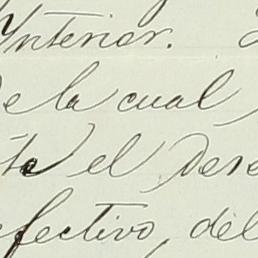 Ynterior.
de la cual
te el Dere
efectivo, del